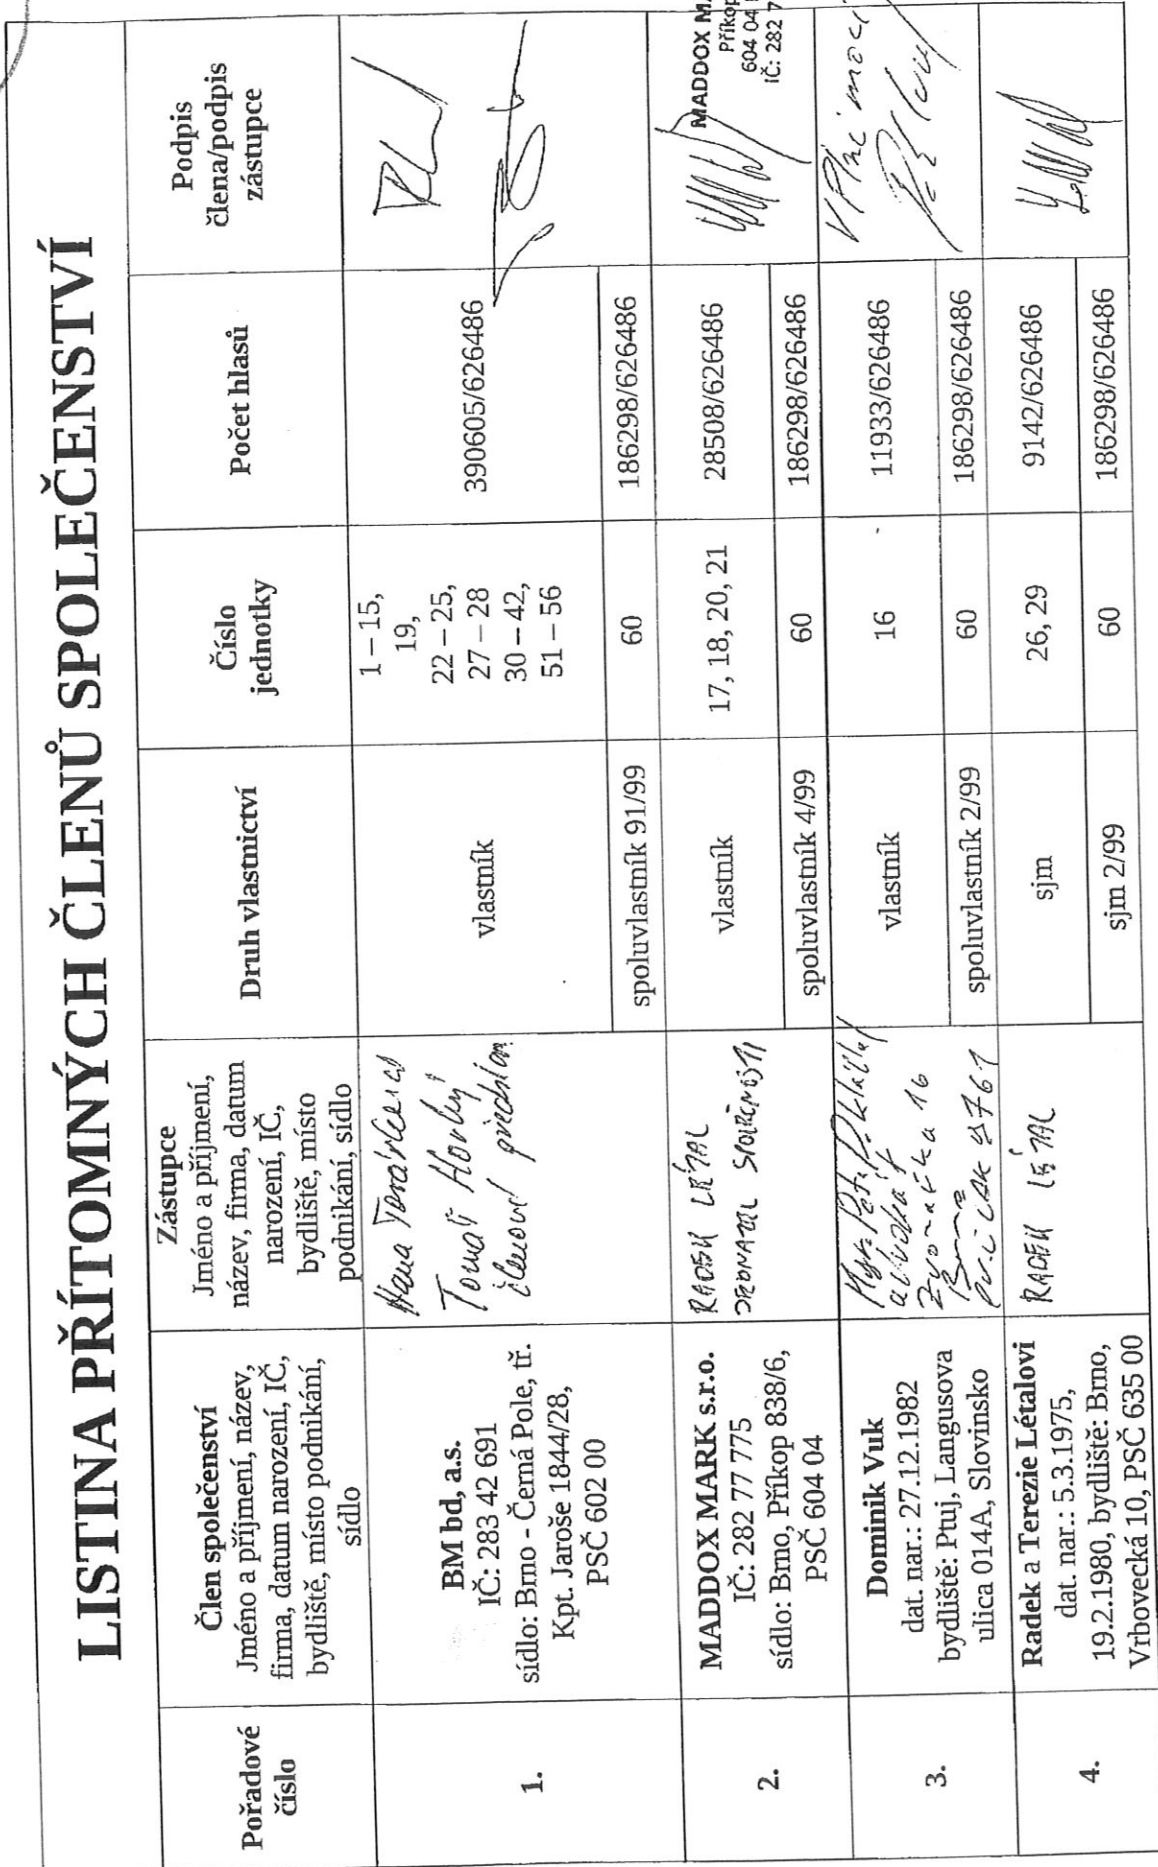 LISTINA PŘÍTOMNÝCH ČLENŮ SPOLEČENSTVÍ
Pořadové
číslo
Člen společenství
Jméno a příjmení, název,
firma, datum narození, IČ,
bydliště, místo podnikání,
sídlo
Zástupce
Jméno a příjmení,
název, firma, datum
narození, IČ,
bydliště, místo
podnikání, sídlo
Druh vlastnictví
Číslo
jednotky
Počet hlasů
Podpis
člena/podpis
zástupce
1.
BM bd, a.s.
IČ: 283 42 691
sídlo: Brno - Černá Pole, tř.
Kpt. Jaroše 1844/28,
PSČ 602 00
Hana
Tomáš Horký
členové
vlastník
1 – 15,
19,
22 – 25,
27 – 28
30 – 42,
51 – 56
390605/626486
spoluvlastník 91/99
60
186298/626486
2.
MADDOX MARK s.r.o.
IČ: 282 77 775
sídlo: Brno, Příkop 838/6,
PSČ 604 04
RADEK LÉTAL
JEDNATEL SPOLEČNOSTI
vlastník
17, 18, 20, 21
28508/626486
MADDOX M
Příkop
604 04
IČ: 282 7
spoluvlastník 4/99
60
186298/626486
3.
Dominik Vuk
dat. nar.: 27.12.1982
bydliště: Ptuj, Langusova
ulica 014A, Slovinsko
Mgr. Petr
advokát
16
Brno
ČAK
vlastník
16
11933/626486
V plné moci
spoluvlastník 2/99
60
186298/626486
4.
Radek a Terezie Létalovi
dat. nar.: 5.3.1975,
19.2.1980, bydliště: Brno,
Vrbovecká 10, PSČ 635 00
RADEK LÉTAL
sjm
26, 29
9142/626486
sjm 2/99
60
186298/626486